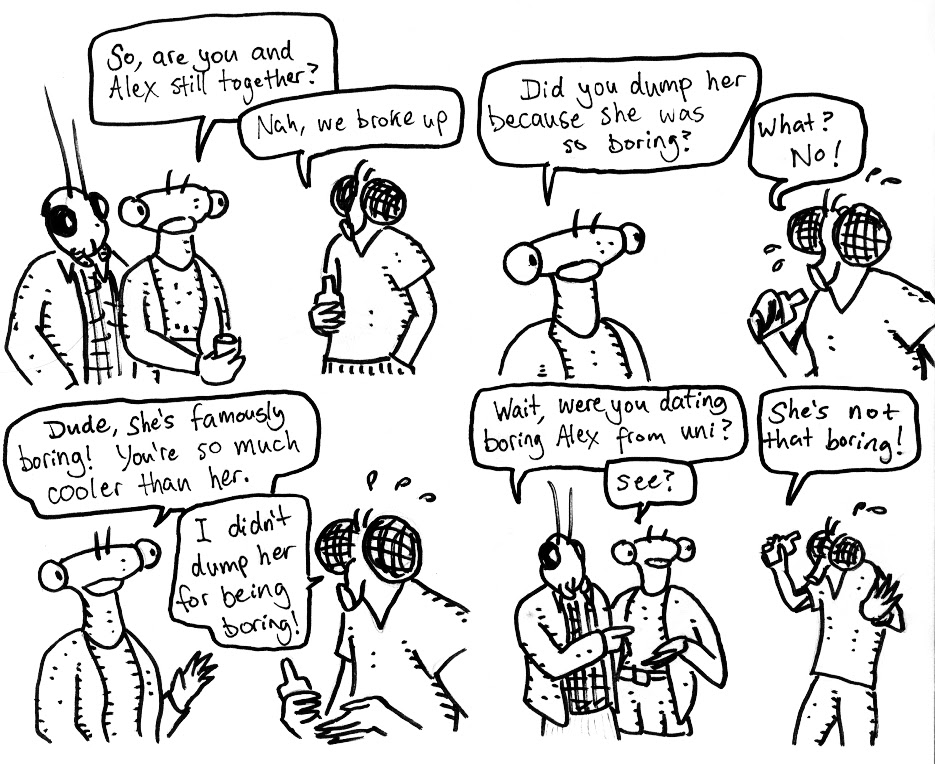 So, are you and
Alex still together?
Nah, we broke up
Did you dump her
because she was
so boring?
What?
No!
Dude, she's famously
boring! You're so much
cooler than her.
I didn't
dump her
for being
boring!
Wait, were you dating
boring Alex from uni?
see?
She's not
that boring!